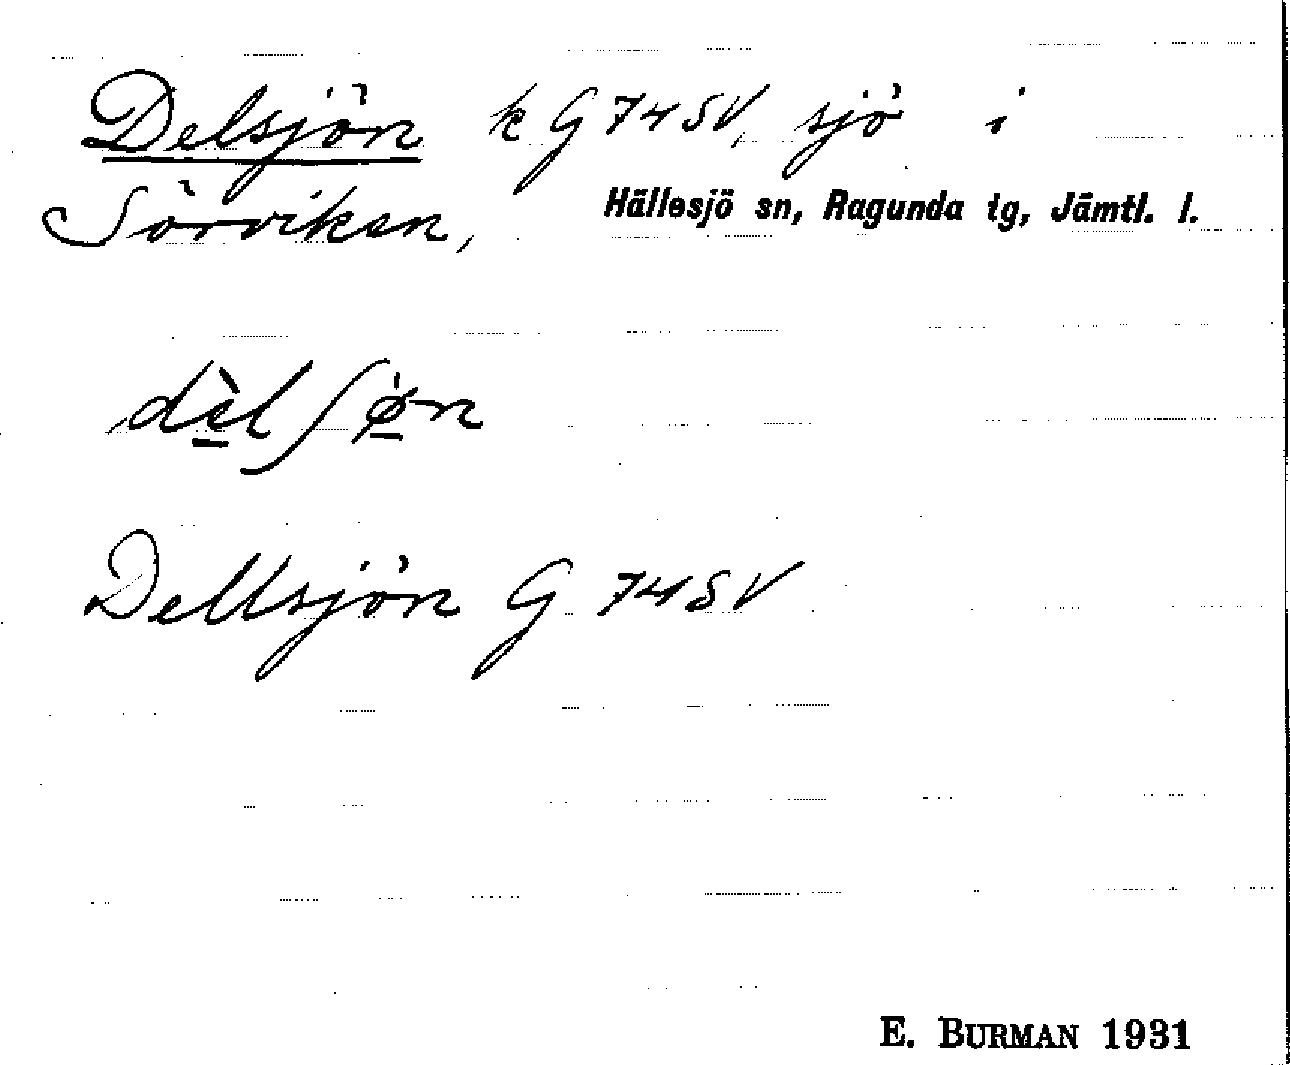 Delsjön k G 74 SV, sjö i
Sörviken, Hällesjö sn, Ragunda tg, Jämtl. l.
dèlʃø̀n
Dellsjön G 74 SV
E. BURMAN 1931